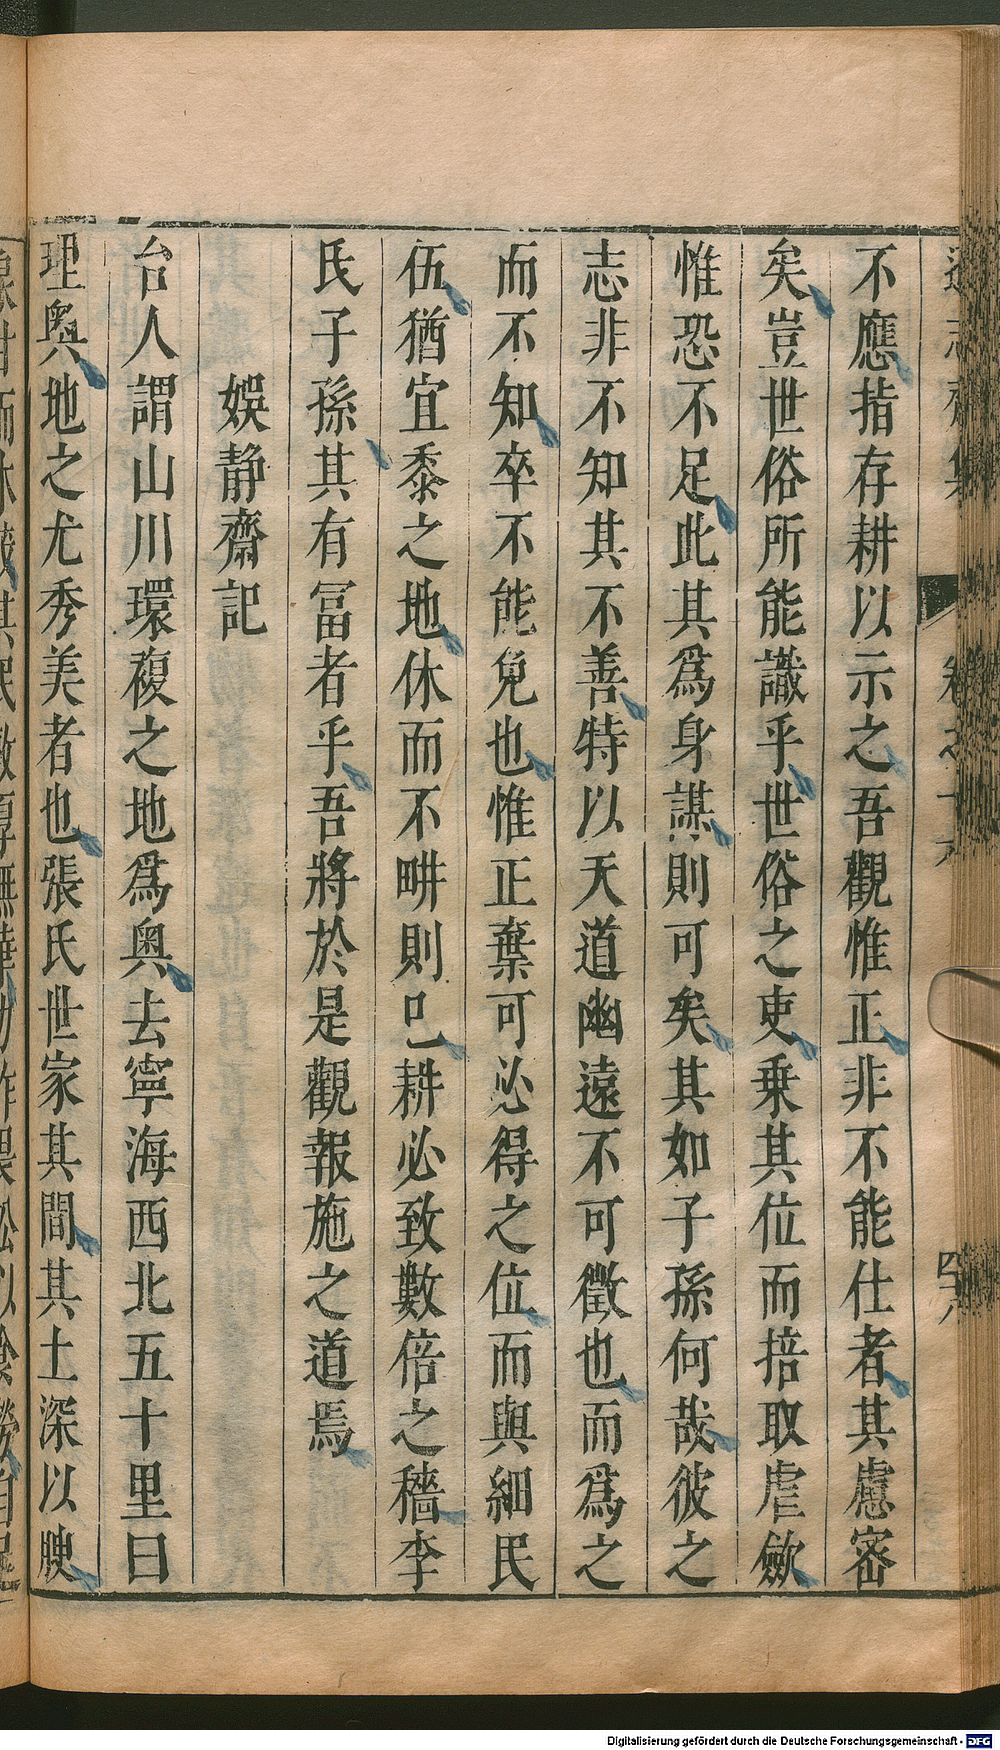 不應指存耕以示之吾觀惟正非不能仕者其慮密
矣豈世俗所能識乎世俗之吏乗其位而掊取虐歛
惟恐不足此其爲身謀則可矣其如子孫何哉彼之
志非不知其不善特以天道幽遠不可徵也而爲之
而不知卒不能免也惟正棄可必得之位而與細民
伍猶宜黍之地休而不畊則已耕必致數倍之穡李
氏子孫其有冨者乎吾將於是觀報施之道焉
娛静齋記
台人謂山川環複之地爲奥去寧海西北五十里曰
理奥地之尤秀美者也張氏世家其間其土深以腴
Digitalisierung gefördert durch die Deutsche Forschungsgemeinschaft - DFG